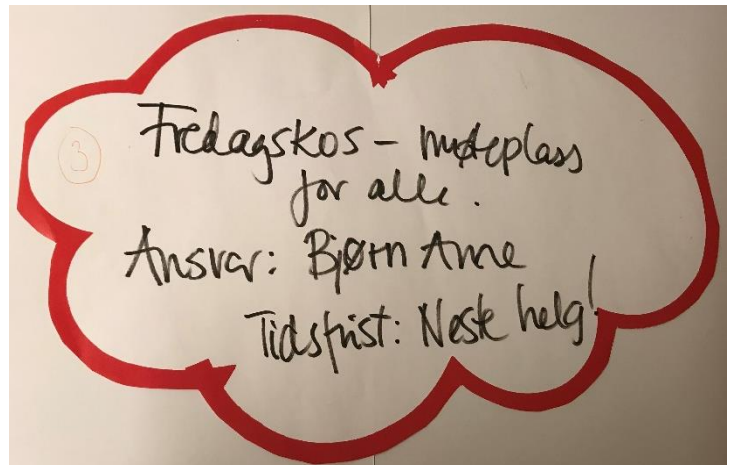 3
Fredagskos – møteplass
for alle.
Ansvar: Bjørn Arne
Tidsfrist: Neste helg!